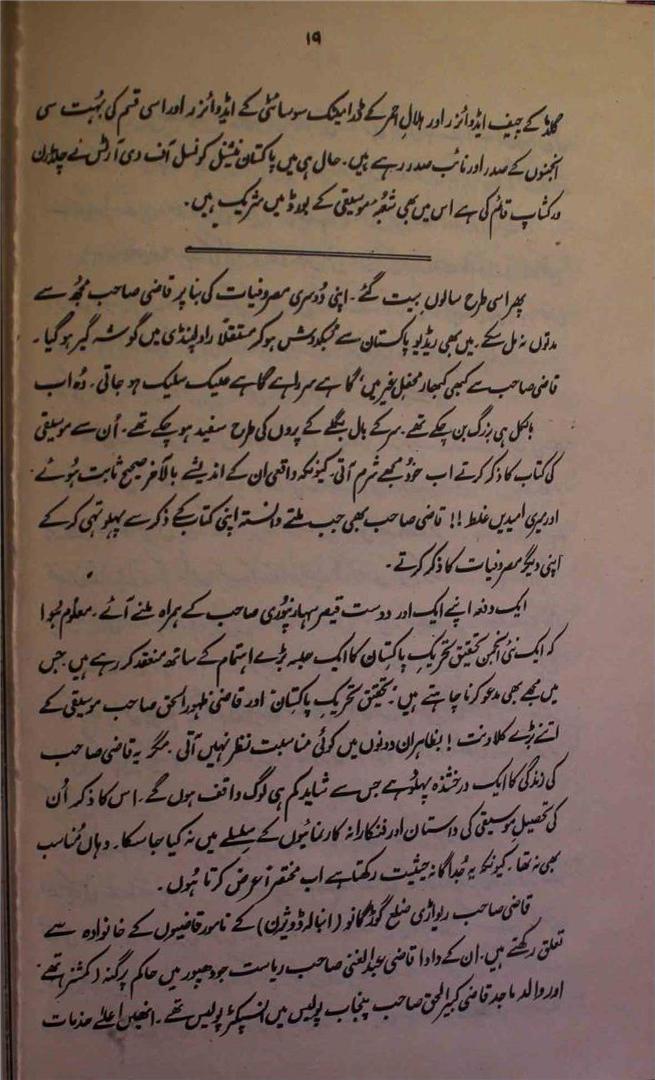 ۱۹
گلڈ کے چیف ایڈوائزر اور ہلالِ احمر کے ڈرامیٹک سوسائٹی کے ایڈوائزر اور اسی قسم کی بہُت سی
انجمنوں کے صدر اور نائب صدر رہے ہیں۔ حال ہی میں پاکستان نیشنل کونسل آف دی آرٹس نے چلڈرن
ورکشاپ قائم کی ہے اس میں بھی شعبۂ موسیقی کے بورڈ میں شریک ہیں۔
پھر اسی طرح سالوں بیت گئے۔ اپنی دُوسری مصروفیات کی بنا پر قاضی صاحب مجُھ سے
مدتوں نہ مل سکے۔ میں بھی ریڈیو پاکستان سے سُبکدوش ہو کر مستقلاً راولپنڈی میں گوشہ گیر ہو گیا۔
قاضی صاحب سے کبھی کبھار محفلِ غیر میں، گاہے سرِ راہے گاہے علیک سلیک ہو جاتی۔ وُہ اب
بالکل ہی بزرگ بن چکے تھے۔ سر کے بال بگلے کے پروں کی طرح سفید ہو چکے تھے۔ اُن سے موسیقی
کی کتاب کا ذکر کرتے اب خود مجھے شرم آتی۔ کیونکہ واقعی ان کے اندیشے بالآخر صحیح ثابت ہوُئے
اور میری امیدیں غلط !! قاضی صاحب بھی جب ملتے دانستہ اپنی کتاب کے ذکر سے پہلو تہی کر کے
اپنی دیگر مصروفیات کا ذکر کرتے۔
ایک دفعہ اپنے ایک اور دوست قیصر سہارنپوُری صاحب کے ہمراہ ملنے آئے۔ معلوُم ہوُا
کہ ایک نئی انجمن تحقیق تحریکِ پاکستان کا ایک جلسہ بڑے اہتمام کے ساتھ منعقد کر رہے ہیں جس
میں مجھے بھی مدعو کرنا چاہتے ہیں: تحقیق تحریکِ پاکستان، اور قاضی ظہور الحق صاحب موسیقی کے
اتنے بڑے کلاونت ! بظاہر ان دونوں میں کوئی مناسبت نظر نہیں آتی۔ مگر یہ قاضی صاحب
کی زندگی کا ایک درخشندہ پہلوُ ہے جس سے شاید کم ہی لوگ واقف ہوں گے۔ اس کا ذکر اُن
کی تحصیلِ موسیقی کی داستان اور فنکارانہ کارنمائیوں کے سلسلے میں نہ کیا جا سکا۔ وہاں مُناسب
بھی نہ تھا۔ کیونکہ یہ جُداگانہ حیثیت رکھتا ہے اب مختصراً عرض کرتا ہُوں۔
قاضی صاحب ریواڑی ضلع گوڑگانو (انبالہ ڈویژن) کے نامور قاضیوں کے خانوادہ سے
تعلق رکھتے ہیں۔ ان کے دادا قاضی عبدالغنی صاحب ریاست جودھپور میں حاکم پرگنہ (کمشنر) تھے۔
اور والد ماجد قاضی کبیر الحق صاحب پنجاب پولیس میں انسپکٹر پولیس تھے۔ انھیں اعلےٰ خدمات